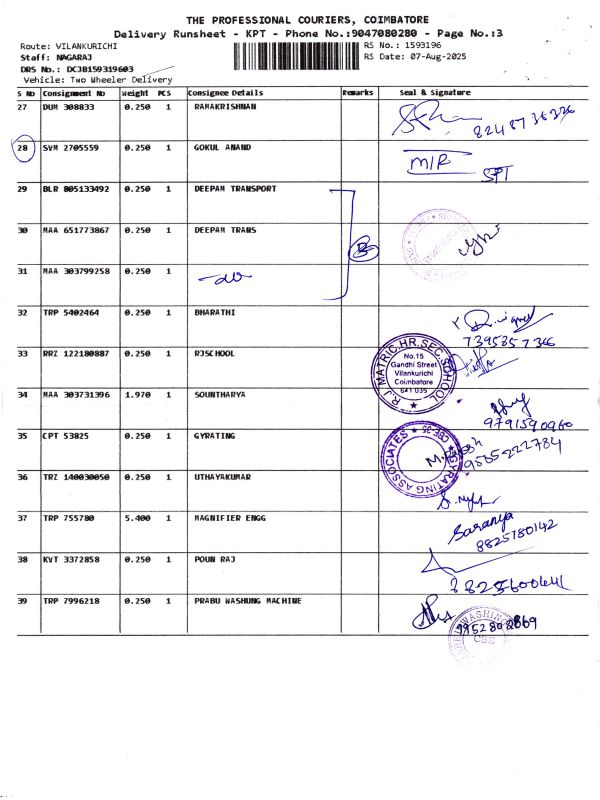 THE PROFESSIONAL COURIERS, COIMBATORE
Delivery Runsheet - KPT - Phone No.:9047080280 - Page No.:3
Route: VILANKURICHI
RS No.: 1593196
Staff: NAGARAJ
RS Date: 07-Aug-2025
DRS No.: DCJB159319603
Vehicle: Two Wheeler Delivery
S No Consignment No Weight PCS Consignee Details Remarks Seal & Signature
27 DUM 308833 0.250 1 RAMAKRISHNAN
8248736336
28 SVM 2705559 0.250 1 GOKUL ANAND M/R SPT
29 BLR 805133492 0.250 1 DEEPAM TRANSPORT
30 MAA 651773867 0.250 1 DEEPAM TRANS
31 MAA 303799258 0.250 1 -do-
32 TRP 5402464 0.250 1 BHARATHI
7395357366
33 RRI 122180887 0.250 1 RJSCHOOL
R.J. MATRIC.HR.SEC.SCHOOL
No.15
Gandhi Street
Vilankurichi
Coimbatore
641 035
34 MAA 303731396 1.970 1 SOUNTHARYA
9791590960
35 CPT 53825 0.250 1 GYRATING
GYRATING ASSOCIATES ★ CBE-35 ★
9585222784
36 TRZ 140030050 0.250 1 UTHAYAKUMAR
37 TRP 755780 5.400 1 MAGNIFIER ENGG
Saranya
8825180142
38 KVT 3372858 0.250 1 POUN RAJ
8825600641
39 TRP 7996218 0.250 1 PRABU WASHUNG MACHINE
9952802869